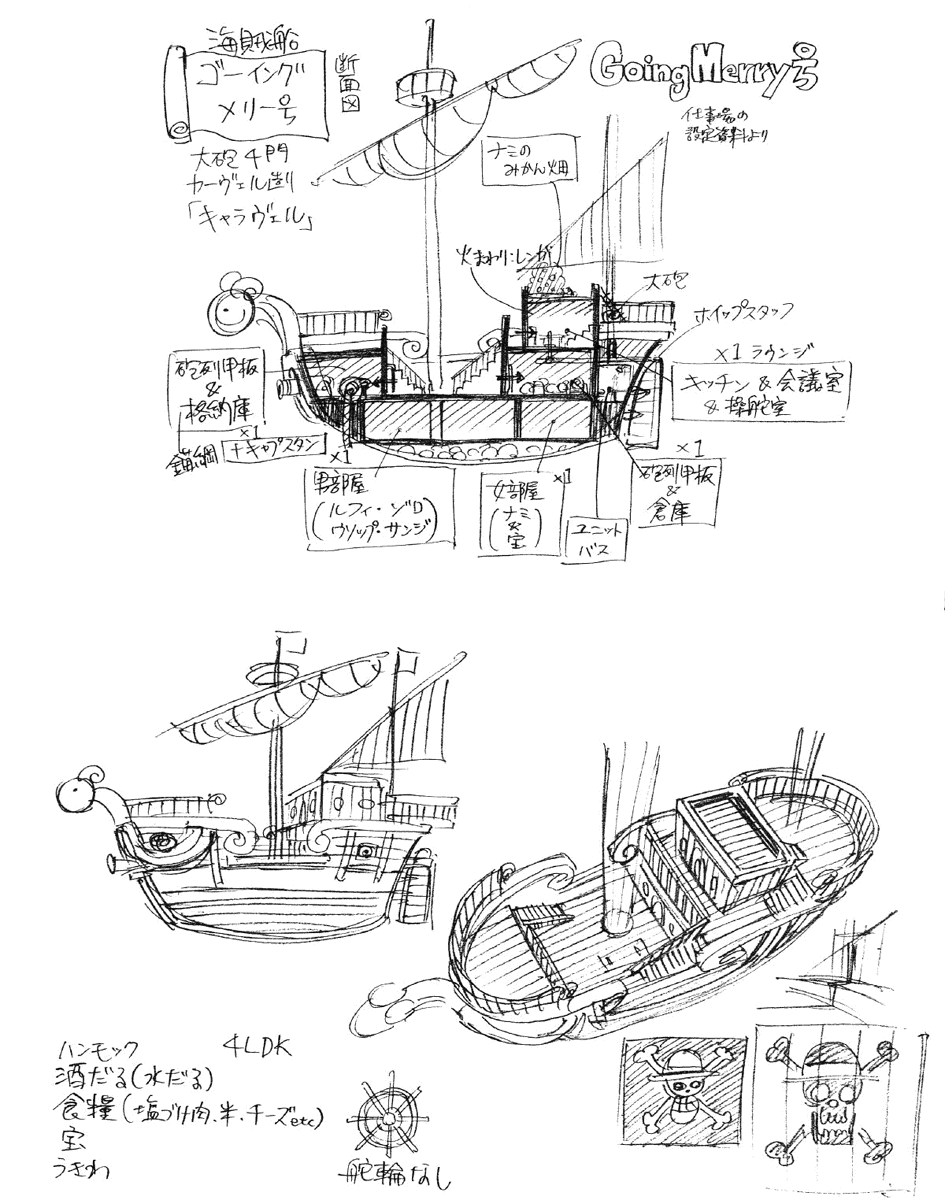 海賊船
ゴーイング
メリー号
断面図
大砲4門
カーヴェル造り
「キャラヴェル」
GoingMerry号
仕事場の
設定資料より
ナミの
みかん畑
火まわりにレンガ
大砲
ホイップスタッフ
×1 ラウンジ
キッチン&会議室
&操舵室
砲列甲板
&
格納庫
×1
錨綱
+キャプスタン
×1
男部屋
(ルフィ・ゾロ
ウソップ・サンジ)
×1
女部屋
(ナミ
&
宝)
ユニット
バス
×1
砲列甲板
&
倉庫
ハンモック
4LDK
酒だる(水だる)
食糧(塩づけ肉、米、チーズetc)
宝
うきわ
舵輪なし